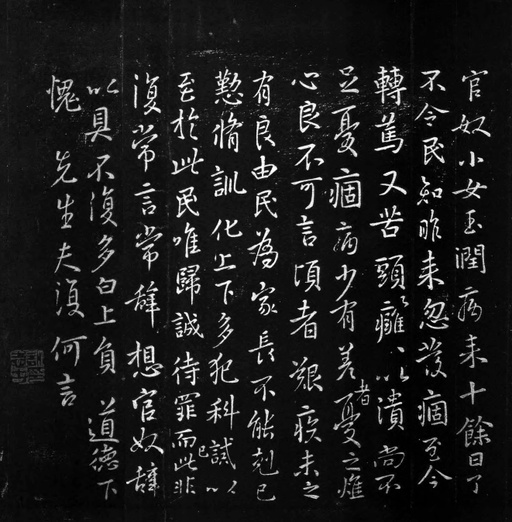 官奴小女玉潤病來十餘日了
不令民知昨來忽發痼至今
轉篤又苦頭癰〻以潰尚不
足憂痼病少有差者憂之燋
心良不可言頃者艱疾未之
有良由民為家長不能剋己
懃脩訓化上下多犯科誡以
至於此民唯歸誠待罪而已此非
復常言常辭想官奴辭
以具不復多白上負 道德下
愧 先生夫復何言